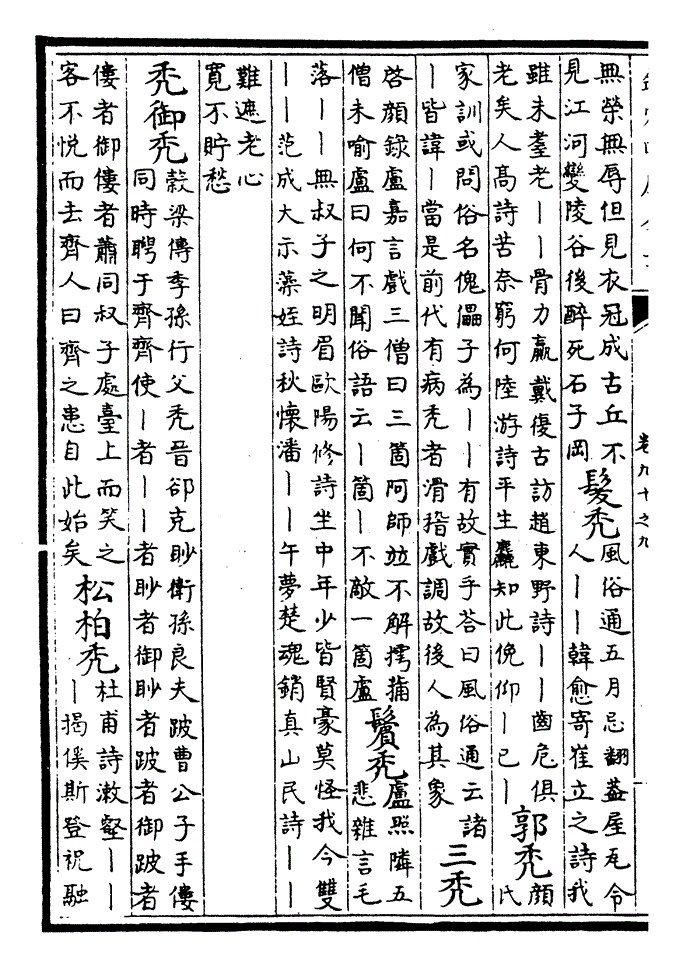 卷九十之九
無榮無辱但見衣冠成古丘不
見江河變陵谷後醉死石子岡
髮禿
風俗通五月忌翻蓋屋瓦令
人丨丨韓愈寄崔立之詩我
雖未耋老丨丨骨力羸戴復古訪趙東野詩丨丨齒危俱
老矣人高詩苦奈窮何陸游詩平生麤知此俛仰丨已丨
郭禿
顔
氏
家訓或問俗名傀儡子為丨丨有故實乎荅曰風俗通云諸
丨皆諱丨當是前代有病禿者滑稽戲調故後人為其象
三禿
啓顔錄盧嘉言戲三僧曰三箇阿師並不解摴蒱
僧未喻盧曰何不聞俗語云丨箇丨不敵一箇盧
鬢禿
盧照隣五
悲雜言毛
落丨丨無叔子之明眉歐陽修詩坐中年少皆賢豪莫怪我今雙
丨丨范成大示藻姪詩秋懷潘丨丨午夢楚魂銷真山民詩丨丨
難遮老心
寛不貯愁
禿御禿
榖梁傳季孫行父禿晉郤克眇衛孫良夫跛曹公子手僂
同時聘于齊齊使丨者丨丨者眇者御眇者跛者御跛者
僂者御僂者蕭同叔子處臺上而笑之
客不悦而去齊人曰齊之患自此始矣
松柏禿
杜甫詩漱壑丨丨
丨揭傒斯登祝融